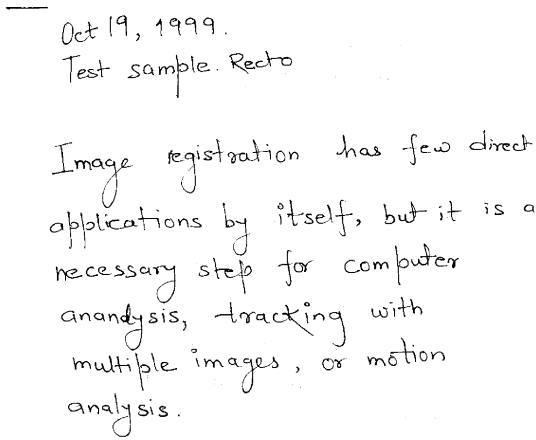 Oct 19, 1999.
Test sample. Recto
Image registration has few direct
applications by itself, but it is a
necessary step for computer
anandysis, tracking with
multiple images, or motion
analysis.